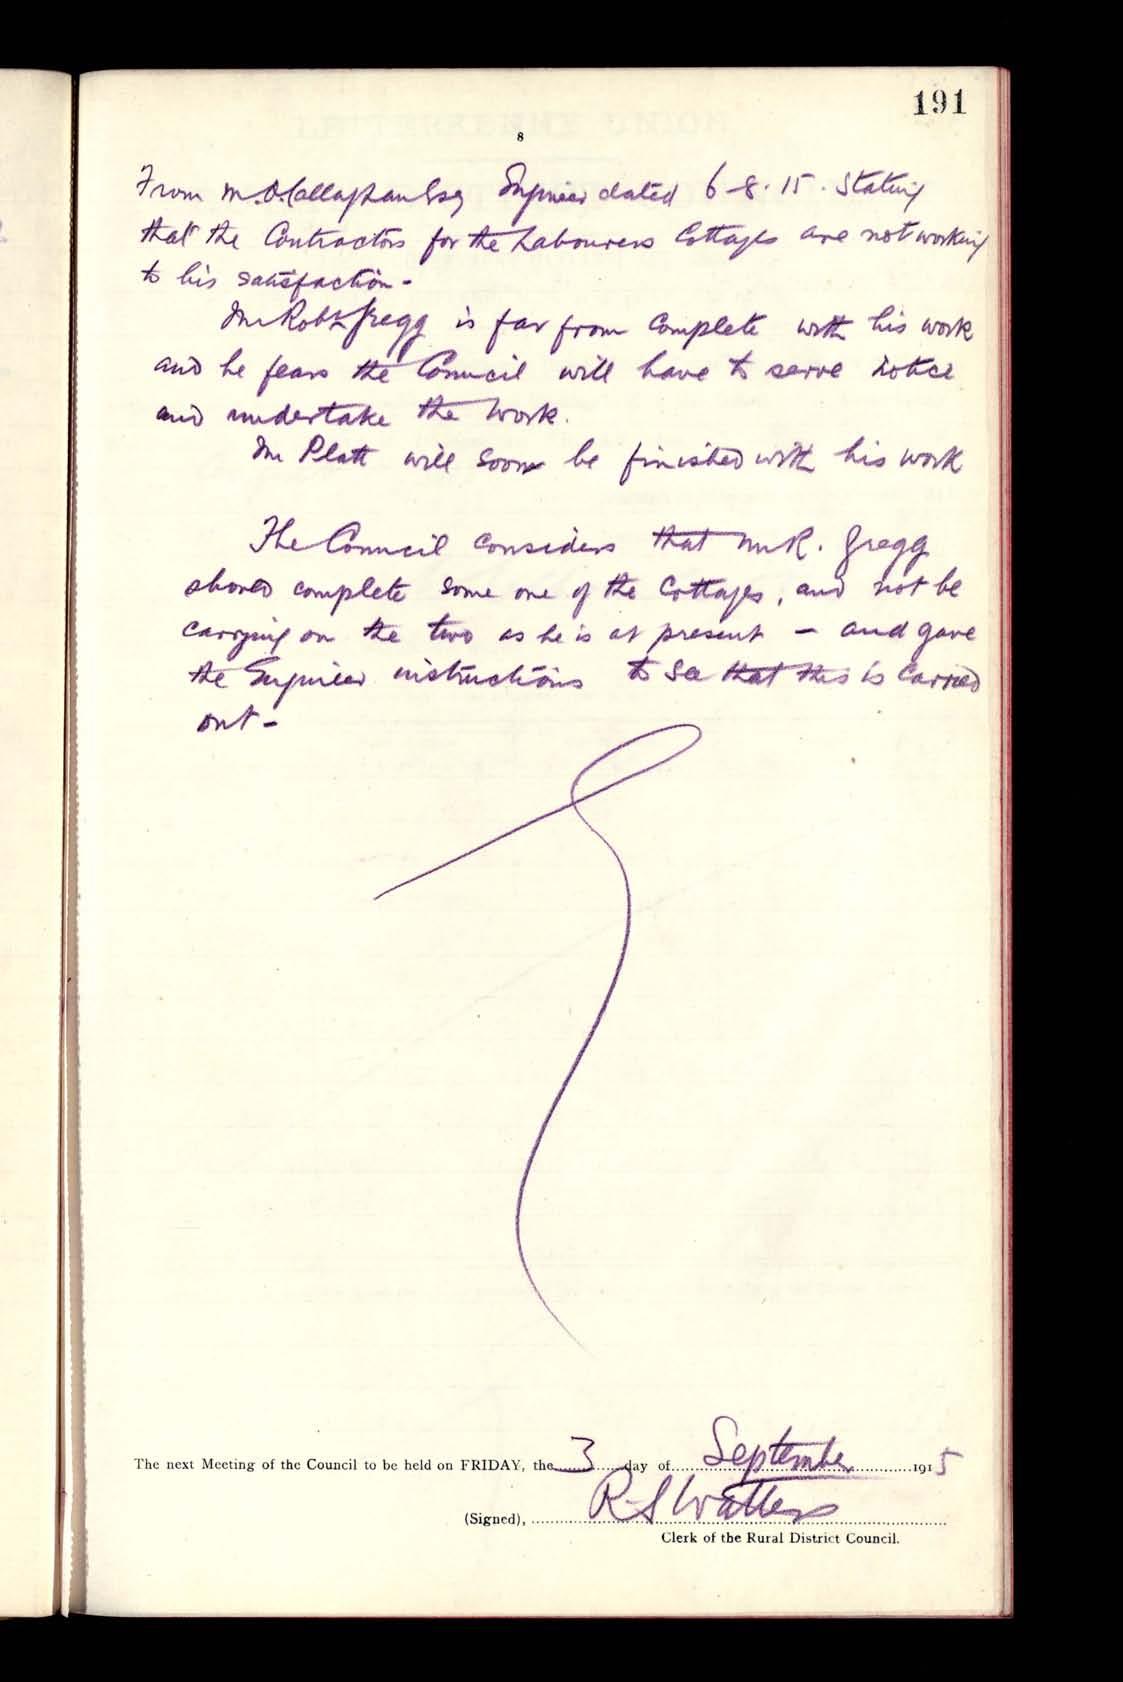 191
8
From M. O'Callaghan Esq Engineer dated 6-8-15. Stating
that the Contractors for the Labourers Cottages are not working
to his satisfaction -
Mr Robt Gregg is far from complete with his work
and he fears the Council will have to serve notice
and undertake the work.
Mr Platt will soon be finished with his work
The Council considers that Mr R. Gregg
should complete some one of the Cottages, and not be
carrying on the two as he is at present - and gave
the Engineer instructions to see that this is carried
out -
The next Meeting of the Council to be held on FRIDAY, the 3 day of September 1915
R S Watters
(Signed),
Clerk of the Rural District Council.